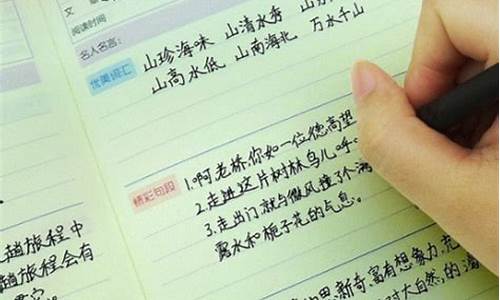 文章
阅读时间
名人名言:
优美词汇
山珍海味 山清水秀
山高水低 山南海北 万水千山
精彩句段
1.啊老桥你如一位德高望
2.走进这片树林鸟儿
3.走出门就与微风撞了个满
露水和栀子花的气息。
趟旅程中
趟旅程会有
思新奇富有想象力,充
对大自然的